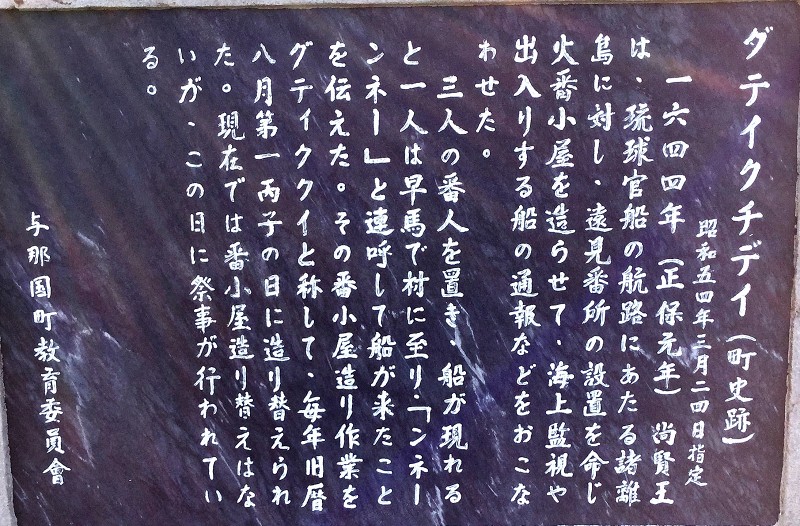 ダテイクチデイ（町史跡）
昭和五四年三月二四日指定
一六四四年（正保元年）尚賢王
は、琉球官船の航路にあたる諸離
島に対し、遠見番所の設置を命じ
火番小屋を造らせて、海上監視や
出入りする船の通報などをおこな
わせた。
三人の番人を置き、船が現れる
と一人は早馬で村に至り、「ンネー
ンネー」と連呼して船が来たこと
を伝えた。その番小屋造り作業を
グテイククイと称して、毎年旧暦
八月第一丙子の日に造り替えられ
た。現在では番小屋造り替えはな
いが、この日に祭事が行われてい
る。
与那国町教育委員會